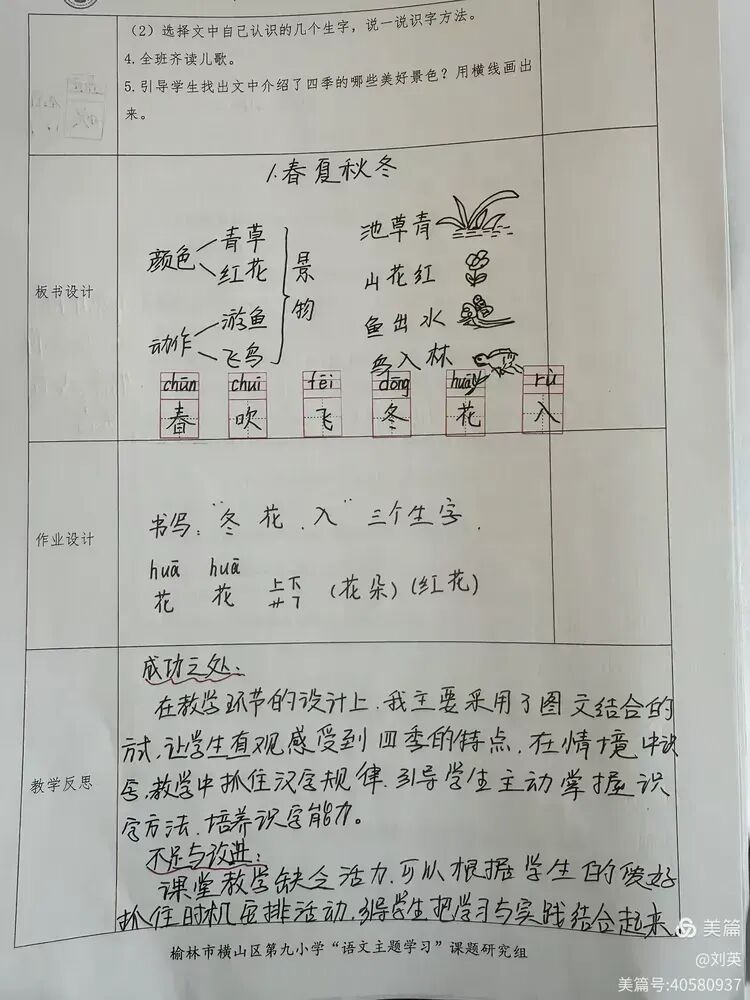 （2）选择文中自己认识的几个生字，说一说识字方法。
4.全班齐读儿歌。
5.引导学生找出文中介绍了四季的哪些美好景色？用横线画出
来。
板书设计
1.春夏秋冬
颜色 青草 红花
动作 游鱼 飞鸟
景物
池草青
山花红
鱼出水
鸟入林
chūn chuī fēi dōng huā rù
春 吹 飞 冬 花 入
作业设计
书写：“冬 花、入”三个生字.
huā huā
花 花 上下 艹 (花朵)(红花)
教学反思
成功之处：
在教学环节的设计上，我主要采用了图文结合的
方式，让学生直观感受到四季的特点，在情境中识
字，教学中抓住汉字规律，引导学生主动掌握识
字方法，培养识字能力。
不足与改进：
课堂教学缺乏活力，可以根据学生的爱好
抓住时机安排活动，引导学生把学习与实践结合起来。
榆林市横山区第九小学“语文主题学习”课题研究组
美篇
@刘英
美篇号:40580937